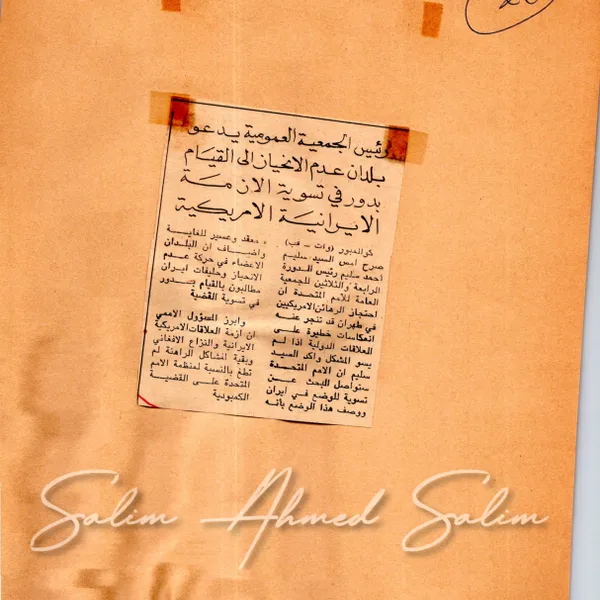 رئيس الجمعية العمومية يدعو
بلدان عدم الانحياز الى القيام
بدور في تسوية الازمة
الايرانية الامريكية
كوالمبور (وات - قب)
صرح امس السيد سليم
احمد سليم رئيس الدورة
الرابعة والثلاثين للجمعية
العامة للامم المتحدة ان
احتجاز الرهائن الامريكيين
في طهران قد تنجر عنه
انعكاسات خطيرة على
العلاقات الدولية اذا لم
يسو المشكل واكد السيد
سليم ان الامم المتحدة
ستواصل البحث عن
تسوية للوضع في ايران
ووصف هذا الوضع بانه
« معقد وعسير للغاية
واضاف ان البلدان
الاعضاء في حركة عدم
الانحياز وحليفات ايران
مطالبون بالقيام بدور
في تسوية القضية
وابرز المسؤول الاممي
ان ازمة العلاقات الامريكية
الايرانية والنزاع الافغاني
وبقية المشاكل الراهنة لم
تطغ بالنسبة لمنظمة الامم
المتحدة على القضية
الكمبودية
Salim Ahmed Salim